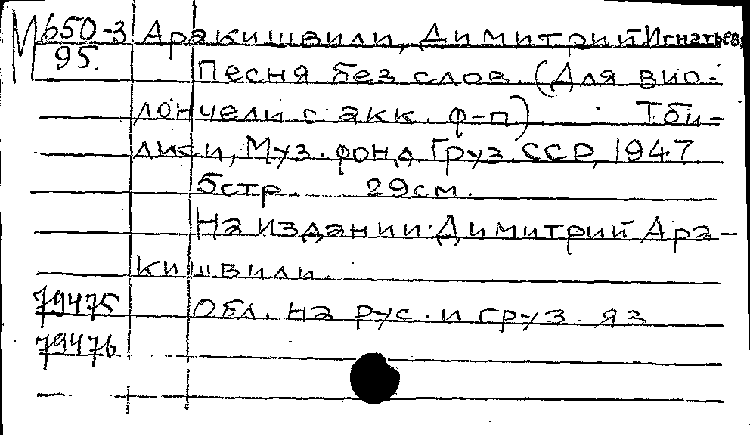 М 650-3 Аракишвили, Димитрий Игнатьев.
95. Песня без слов. (Для вио-
лончели с акк. ф-п) Тби-
лиси, Муз. фонд Груз. ССР, 1947.
5 стр. 29 см.
На издании: Димитрий Ара-
кишвили.
79475 Обл. на рус. и груз. яз
79476